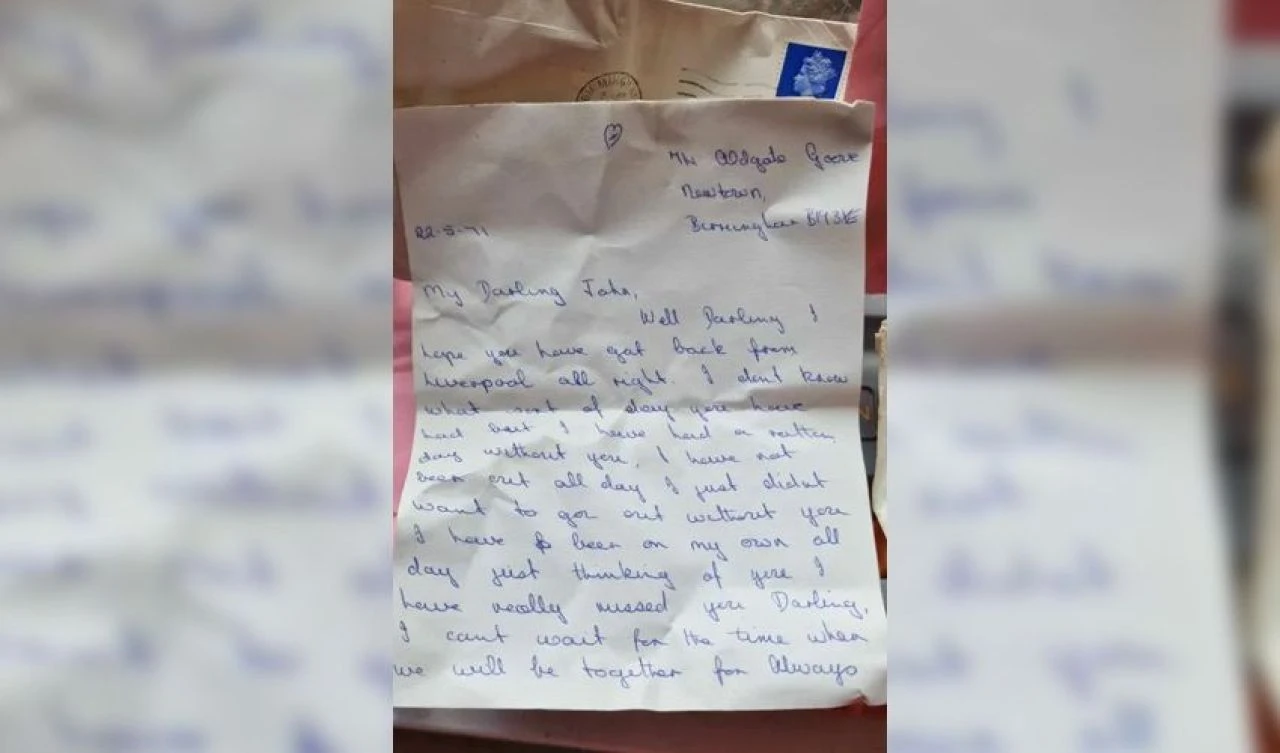 Aldgate Grove
Newtown,
Birmingham B193XE
22-5-71
My Darling John,
Well Darling I
hope you have got back from
Liverpool all right. I don't know
what sort of day you have
had but I have had a rotten
day without you, I have not
been out all day I just didnt
want to go out without you
I have been on my own all
day just thinking of you I
have really missed you Darling,
I cant wait for the time when
we will be together for Always